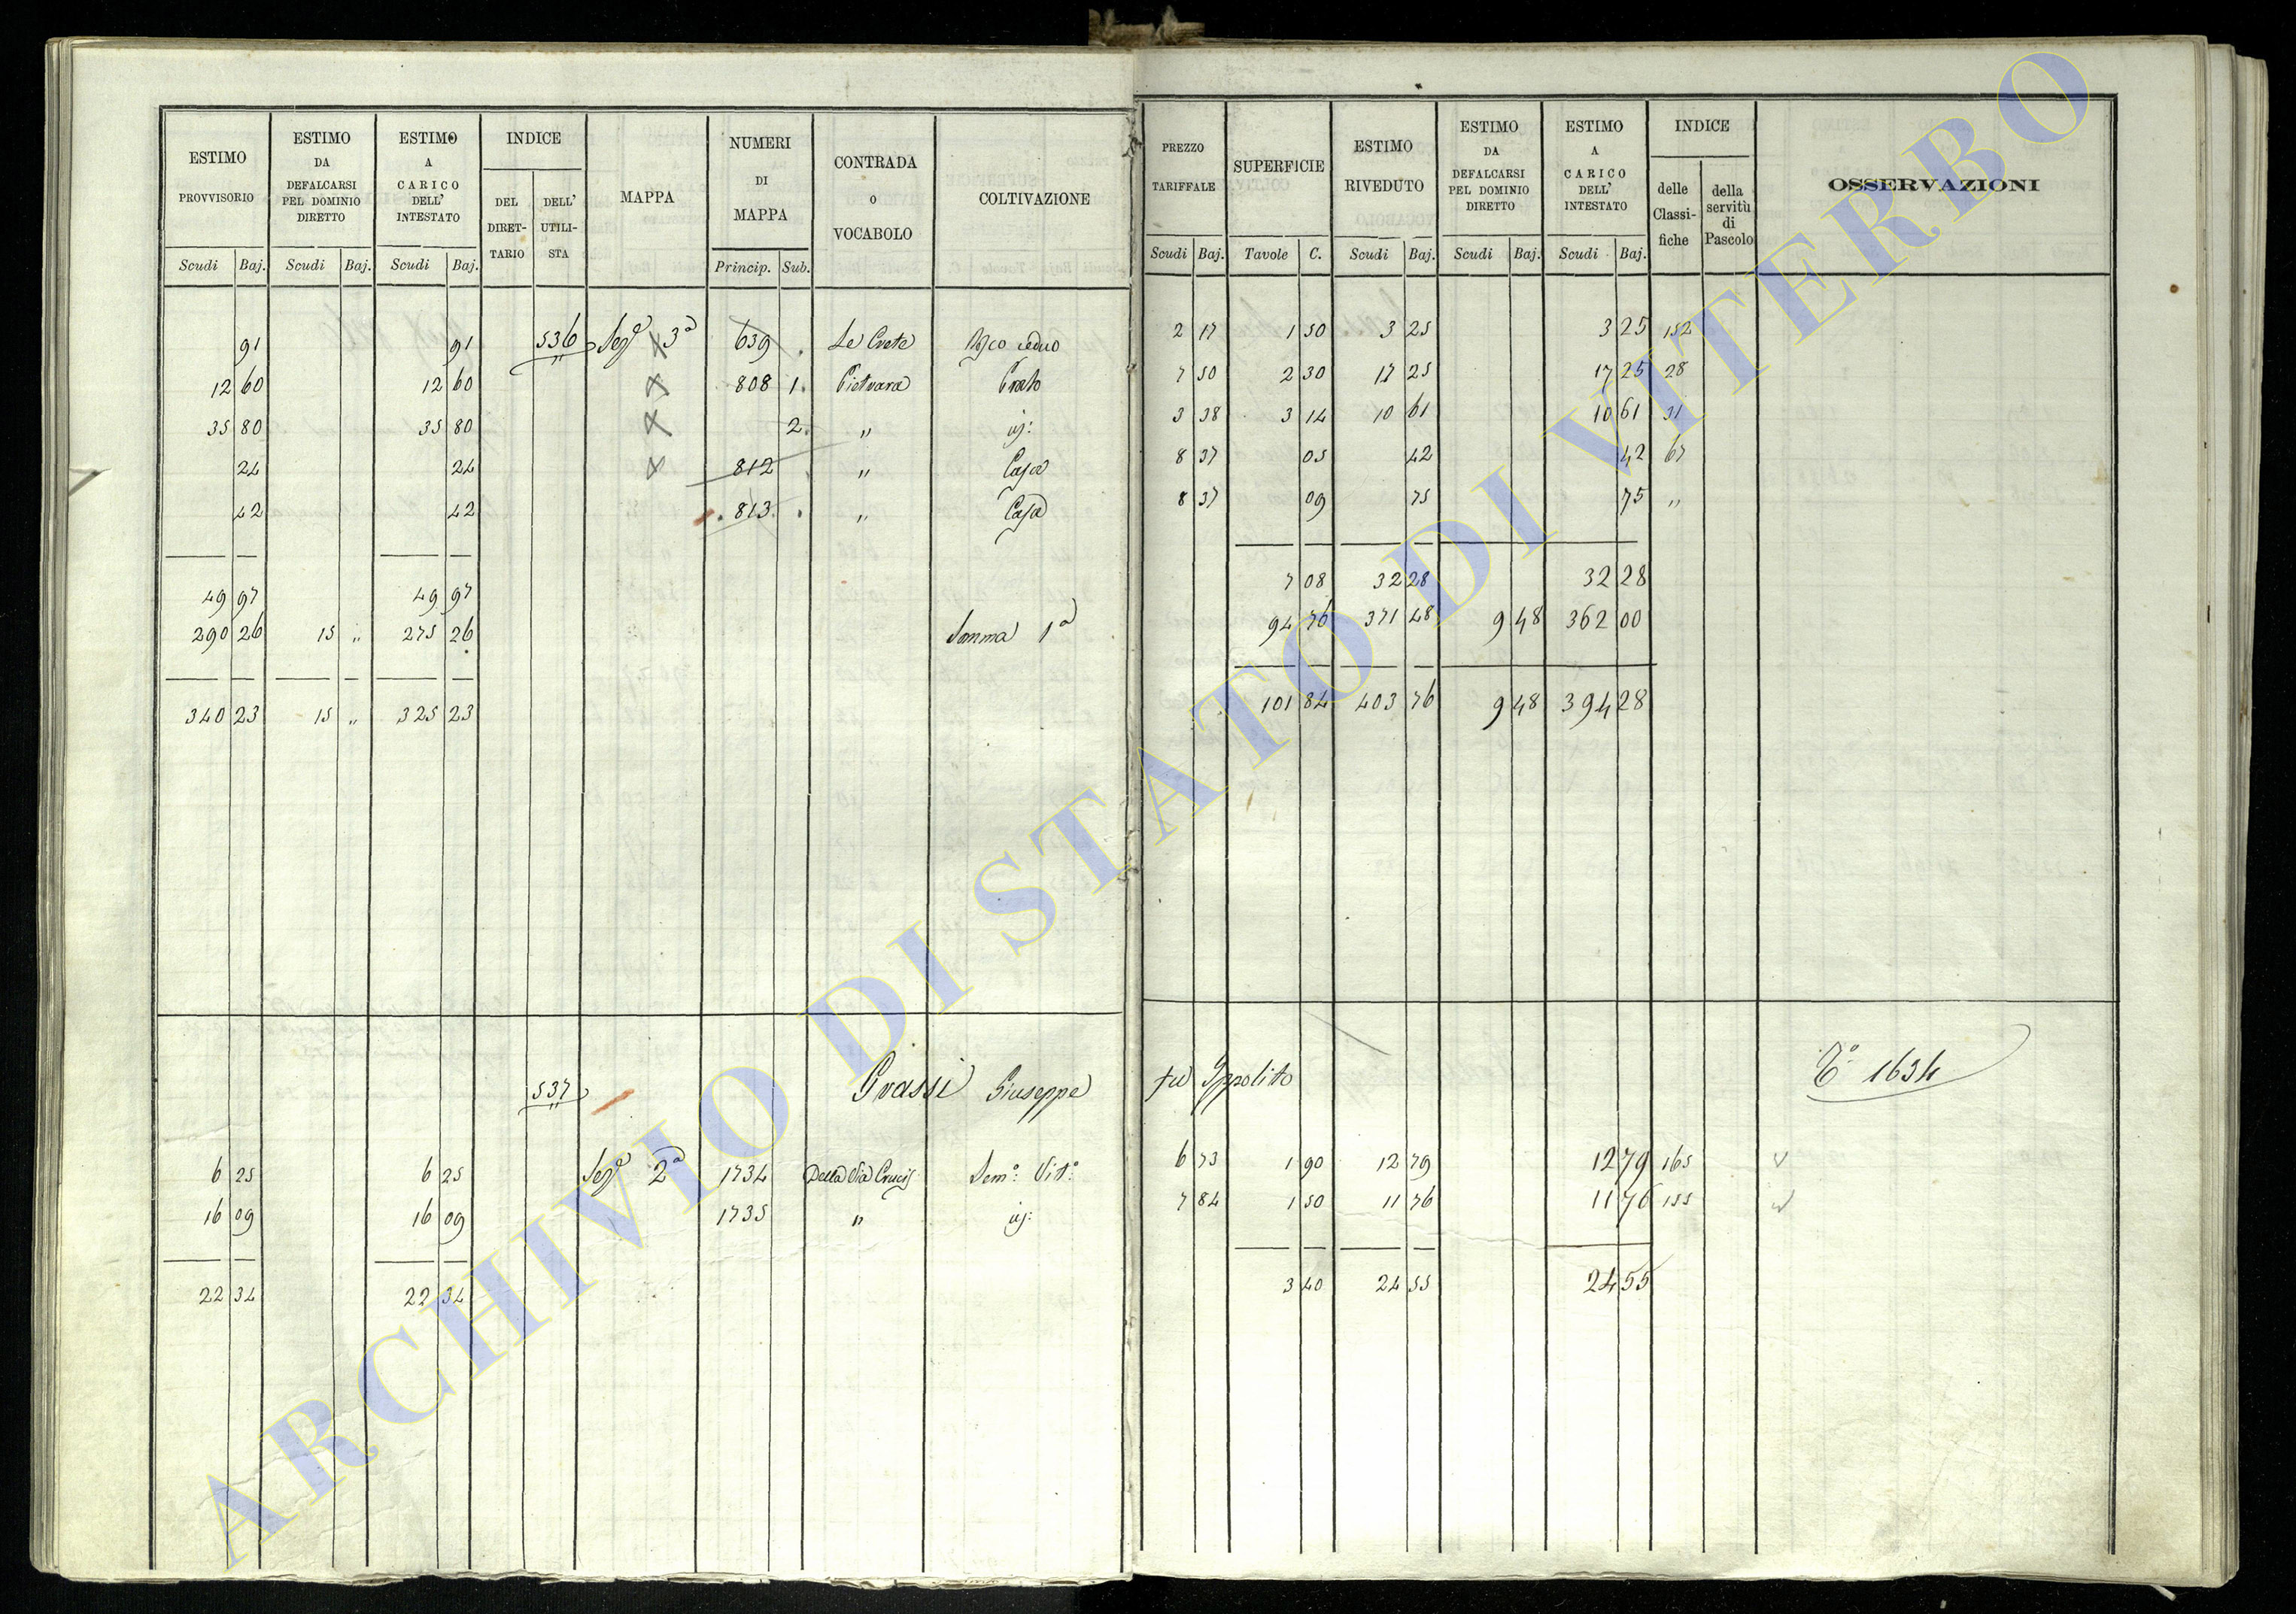 ESTIMO PROVVISORIO | ESTIMO DA DEFALCARSI PEL DOMINIO DIRETTO | ESTIMO A CARICO DELL' INTESTATO | INDICE DEL DIRET-TARIO | DELL' UTILI-STA | MAPPA | NUMERI DI MAPPA | CONTRADA o VOCABOLO | COLTIVAZIONE
Scudi Baj. | Scudi Baj. | Scudi Baj. | Princip. Sub.
91 | 91 | 536 | Sez.e 3a | 639 | Le Crete | Bosco ceduo
12 60 | 12 60 | 808 1. | Pietrara | Prato
35 80 | 35 80 | 2. | " | id:
24 | 24 | 812 | " | Casa
42 | 42 | 813 | " | Casa
49 97 | 49 97
290 26 | 15 " | 275 26 | Somma 1a
340 23 | 15 " | 325 23
537 | Grassi Giuseppe
6 25 | 6 25 | Sez.e 2a | 1734 | Della Via Crucis | Sem.o Vit.o
16 09 | 16 09 | 1735 | " | id:
22 34 | 22 34
PREZZO TARIFFALE | SUPERFICIE | ESTIMO RIVEDUTO | ESTIMO DA DEFALCARSI PEL DOMINIO DIRETTO | ESTIMO A CARICO DELL' INTESTATO | INDICE delle Classi-fiche | della servitù di Pascolo | OSSERVAZIONI
Scudi Baj. | Tavole C. | Scudi Baj. | Scudi Baj. | Scudi Baj.
2 17 | 1 50 | 3 25 | 3 25 | 152
7 50 | 2 30 | 17 25 | 17 25 | 28
3 38 | 3 14 | 10 61 | 10 61 | 31
8 37 | 05 | 42 | 42 | 67
8 37 | 09 | 75 | 75 | "
7 08 | 32 28 | 32 28
94 76 | 371 48 | 9 48 | 362 00
101 84 | 403 76 | 9 48 | 394 28
fu Ippolito | 1634
6 73 | 1 90 | 12 79 | 12 79 | 165
7 84 | 1 50 | 11 76 | 11 76 | 155
3 40 | 24 55 | 24 55
ARCHIVIO DI STATO DI VITERBO